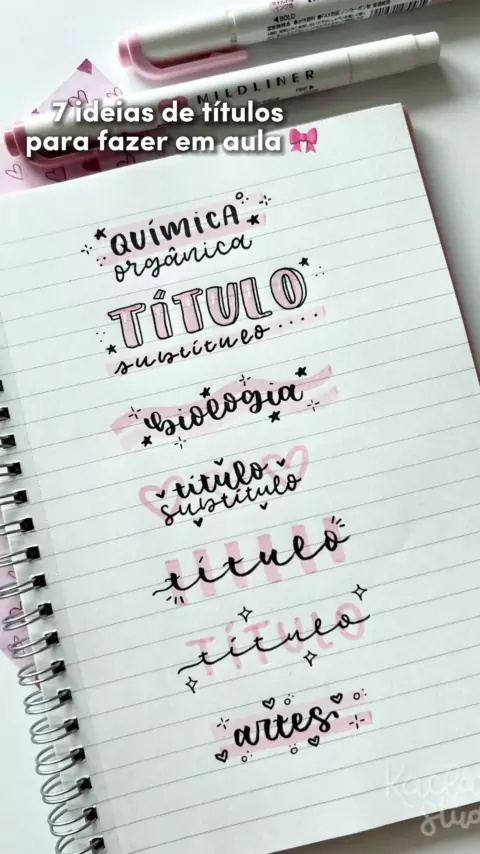 BOLD
MILDLINER
7 ideias de títulos
para fazer em aula
QUÍMICA
orgânica
TÍTULO
subtítulo....
biologia
título
subtítulo
título
TÍTULO
título
artes